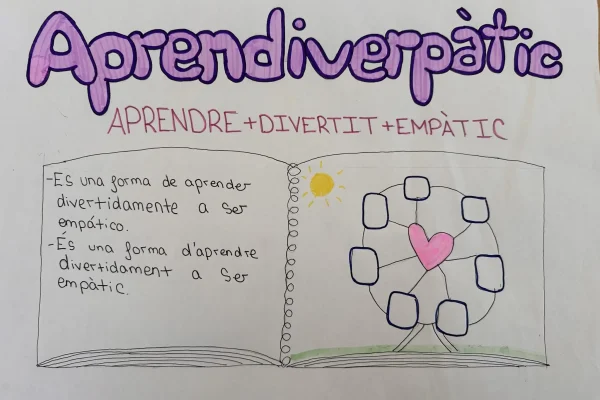 Aprendiverpàtic
APRENDRE+DIVERTIT+EMPÀTIC
-Es una forma de aprender
divertidamente a ser
empático.
-És una forma d'aprendre
divertidament a ser
empàtic.